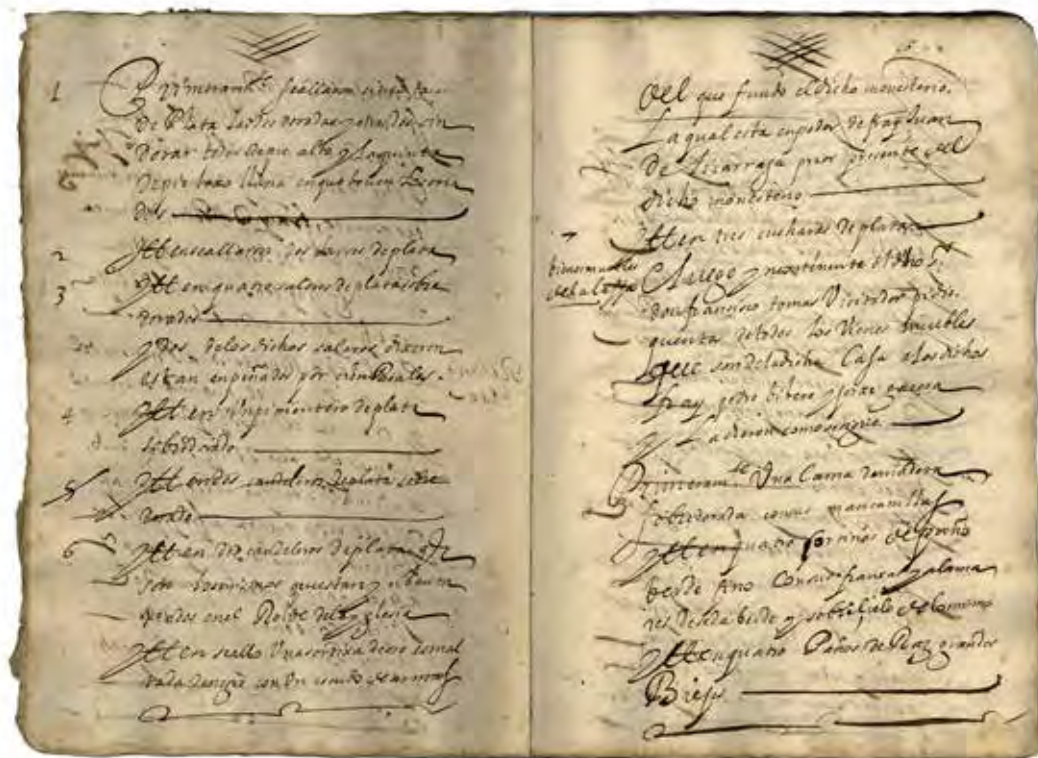 1 Primeramte. se allaron cinco
de Plata los tres dorados y otros dos sin
dorar todos de pie alto y la quinta
de pie baxo llana en que beven
dos
2 Itten se allaron dos jarros de plata
3 Itten quatro saleros de plata sobre
dorados
y dos de los dichos saleros dixeron
estan enpeñados por cien Reales.
4 Itten un pimentero de plata
sobredorado
5 Itten dos candeleros de plata sobre
dorados
6 Itten dos candeleros de plata q̃
son los mismos que estan
en el Rolde de la yglesia
Itten se allo una sortixa de oro esmal
tada con un escudo de armas
del que fundo el dicho monesterio.
La qual esta en poder de fray Juan
de Lizarraga prior presente del
dicho monesterio
Itten tres cucharas de plata
bienes muebles
de la casa
E luego yncontinente el dho Sr
don francisco tomas Visitador pidio
quenta de todos los Vienes muebles
que son de la dicha Casa a los dichos
fray pedro bibero y jorge
y La dieron como se sigue
Primeramte Una Cama
sobredorada con sus mancanillas
Itten quatro cortinas de paño
berde fino Con sus franxas y alama
res de seda berde y sobrecielo de lo mismo
Itten quatro Paños de Raz grandes
Biejos